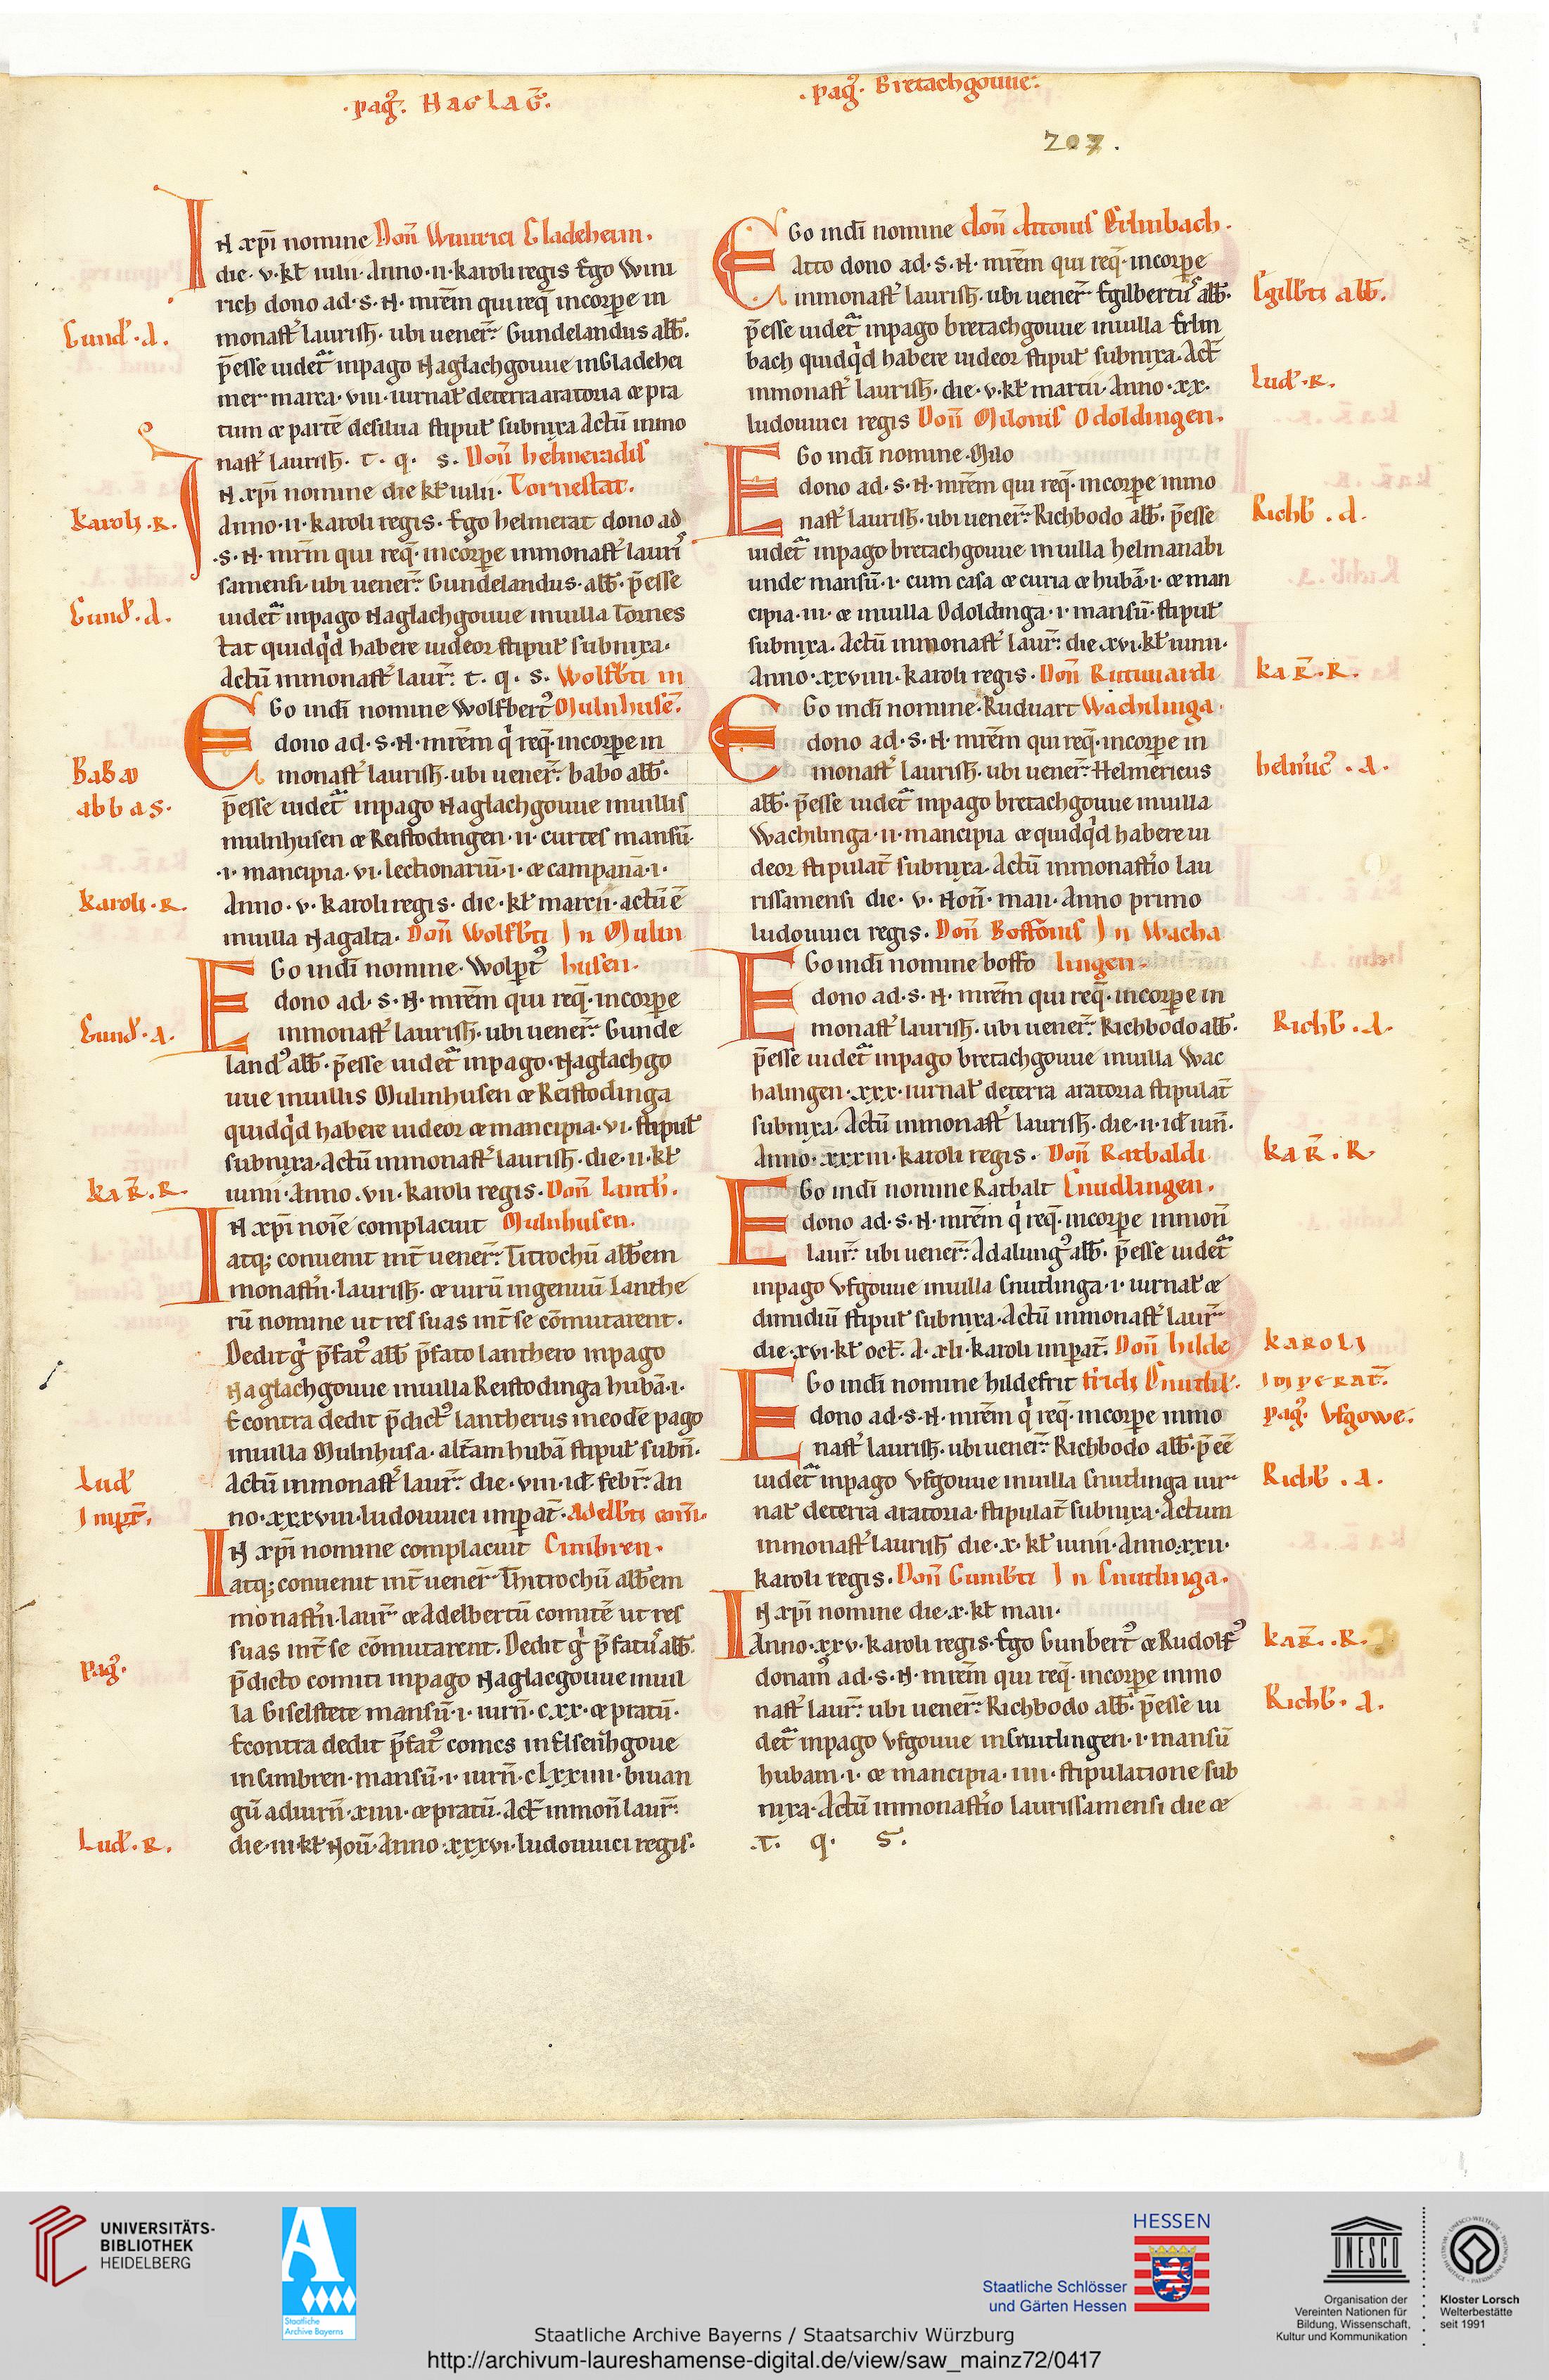 .pagꝰ. Naglaḡ.
.pagꝰ. Bretachgouue.
207.
IN xp̄i nomine Don̄ Winirici Gladeheim.
die. v. kł iulii. Anno. ii. karoli regis Ego Wini
rich dono ad. s. N. mr̄em qui req̄. incorpe in
Gund. a.
monast̄ laurish̄. ubi uener̄. Gundelandus abb̄.
p̄esse uidet̄ inpago Naglachgouue inGladehei
mer marca. viii. iurnal̄ deterra aratoria & pra
tum & partē desilua stipul̄ subnixa Actū inmo
nast̄ laurish̄. t. q. s. Don̄ helmeradis
IN xp̄i nomine die kł iulii. Tornestat.
karoli. R.
Anno. ii. karoli regis. Ego helmerat dono ad
.s. N. mr̄m qui req̄. incorpe inmonast̄ lauris
samensi. ubi uener̄. Gundelandus. abb̄. p̄esse
Gund. a.
uidet̄ inpago Naglachgouue inuilla Tornes
tat quidqd habere uideor stipul̄ subnixa.
Actū inmonast̄ laur̄. t. q. s. Wolfb̄ti in
EGo indi nomine wolfbertꝰ Mulnhusē.
dono ad. s. N. mr̄em q̇ req̄. incorpe in
Babo
monast̄ laurish̄. ubi uener̄. babo abb̄.
abbas.
p̄esse uidet̄ inpago Naglachgouue inuillis
mulnhusen & Reistodingen. ii. curtes mansū.
.i. mancipia. vi. lectionariū. i. & campanā. i.
karoli. R.
Anno. v. karoli regis. die. kł marcii. actū ē
inuilla Nagalta. Don̄ Wolfb̄ti In Mulin
EGo indi nomine. Wolptꝰ husen.
dono ad. s. N. mr̄em qui req̄. incorpe
Gund. a.
inmonast̄ laurish̄. ubi uener̄. Gunde
landꝰ abb̄. p̄esse uidet̄ inpago. Naglachgo
uue inuillis Mulinhusen & Reistodinga
quidqd habere uideor & mancipia. vi. stipul̄
subnixa. Actū inmonast̄ laurish̄. die. ii. kł
kar̄. R.
iunii. Anno. vii. karoli regis. Don̄ lanth̄.
IN xp̄i noīe complacuit Mulnhusen.
atq; conuenit int̄ uener̄. Titrochū abb̄em
monast̄ii. laurish̄. & uirū ingenuū Lanthe
rū nomine ut res suas int̄ se cōmutarent.
Dedit g̊ p̄fatꝰ abb̄ p̄fato lanthero inpago
Naglachgouue inuilla Reistodinga hubā. i.
Econtra dedit p̄dictꝰ lantherus ineodē pago
inuilla Mulnhusa. alt̄am hubā stipul̄ subn̄.
Lud
Actū inmonast̄ laur̄. die. viii. id̄. febr̄. An
Impr̄t.
no. xxxviii. ludouuici imp̄at̄. Adelb̄ti com̄.
IN xp̄i nomine complacuit Cimbren.
atq; conuenit int̄ uener̄ Thitrochū abb̄em
monast̄ii. laur̄ & Adelbertū comitē ut res
suas int̄ se cōmutarent. Dedit g̊ p̄fatus abb̄.
Pagꝰ.
p̄dicto comiti inpago Naglacgouue inuil
la Giselstete mansū. i. iurn̄. cxx. & pratū.
Econtra dedit p̄fatꝰ comes inElsenhgoue
inCimbren. mansū. i. iurn̄. clxxiiii. biuan
gū adiurn̄. xiiii. & pratū. Act̄ inmon̄ laur̄.
Lud. R.
die. iii. kł Nou̅. Anno. xxxvi. ludouuici regis.
EGo indi nomine don̄ Attonis Erlinbach.
Atto dono ad. s. N. mr̄em qui req̄. incorpe
Egilb̄ti abb̄.
inmonast̄ laurish̄. ubi uener̄ Egilbertus abb̄.
p̄esse uidet̄ inpago bretachgouue inuilla Erlin
bach quidqd habere uideor stipul̄ subnixa. Act̄
Lud. R.
inmonast̄ laurish̄. die. v. kł marcii. Anno. xx.
ludouuici regis Don̄ Milonis Odoldingen.
EGo indi nomine. Milo
dono ad. s. N. mr̄em qui req̄. incorpe inmo
Richb̄. a.
nast̄ laurish̄. ubi uener̄. Richbodo abb̄. p̄esse
uidet̄ inpago bretachgouue inuilla helmanabi
unde mansū. i. cum casa & curia & hubā. i. & man
cipia. iii. & inuilla Odoldinga. i. mansū. stipul̄
subnixa. Actū inmonast̄ laur̄. die. xvi. kł iunii.
kar̄. R.
Anno. xxviiii. karoli regis. Don̄ Rutuuardi
EGo indi nomine. Ruduart Wachilinga.
dono ad. s. N. mr̄em qui req̄. incorpe in
helm̄icꝰ. a.
monast̄ laurish̄. ubi uener̄. Helmericus
abb̄. p̄esse uidet̄ inpago bretachgouue inuilla
Wachilinga. ii. mancipia & quidqd habere ui
deor stipulat̄ subnixa. Actū inmonast̄io lau
rissamensi die. v. Non̄. maii. Anno primo
ludouuici regis. Don̄ Boffonis In Wacha
EGo indi nomine boffo lingen.
dono ad. s. N. mr̄em qui req̄. incorpe in
Richb̄. a.
monast̄ laurish̄. ubi uener̄. Richbodo abb̄.
p̄esse uidet̄ inpago bretachgouue inuilla Wac
halingen. xxx. iurnal̄ deterra aratoria stipulat̄
subnixa. Actū inmonast̄ laurish̄. die. ii. id̄ iun̄.
kar̄. R
Anno. xxxiii. karoli regis. Don̄ Ratbaldi
EGo indi nomine Ratbalt Cnudlingen.
dono ad. s. N. mr̄em q̇ req̄. incorpe inmon̄
laur̄. ubi uener̄. Adalungꝰ abb̄. p̄esse uidet̄
inpago Vfgouue inuilla Cnutlinga. i. iurnal̄ &
dimidiū stipul̄ subnixa. Actū inmonast̄ laur̄
karoli
die. xvi. kł oct̄. A. xli. karoli imp̄at̄. Don̄ hilde
Imperat̄.
EGo indi nomine hildefrit fridi Cnutli.
pagꝰ. Vfgowe.
dono ad. s. N. mr̄em q̇ req̄. incorpe inmo
nast̄ laurish̄. ubi uener̄. Richbodo abb̄. p̄eē
Richb̄. a.
uidet̄ inpago Vfgouue inuilla Cnutlinga iur
nal̄ deterra aratoria. stipulat̄ subnixa. Actum
inmonast̄ laurish̄ die. x. kł iunii. Anno. xxii.
karoli regis. Don̄ Gunb̄ti In Cnutlinga.
IN xp̄i nomine die. x. kł maii.
kar̄. R.
Anno. xxv. karoli regis. Ego Gunbertꝰ & Rudolfꝰ
donamꝰ ad. s. N. mr̄em qui req̄. incorpe inmo
Richb̄. a.
nast̄ laur̄. ubi uener̄. Richbodo abb̄. p̄esse ui
det̄ inpago Vfgouue inCnutlingen. i. mansū
hubam. i. & mancipia. iiii. stipulatione sub
nixa. Actū inmonast̄io laurissamensi die &
.t. q. s.
UNIVERSITÄTS-
BIBLIOTHEK
HEIDELBERG
Staatliche
Archive Bayerns
HESSEN
Staatliche Schlösser
und Gärten Hessen
UNESCO
Organisation der
Vereinten Nationen für
Bildung, Wissenschaft,
Kultur und Kommunikation
Kloster Lorsch
Welterbestätte
seit 1991
Staatliche Archive Bayerns / Staatsarchiv Würzburg
http://archivum-laureshamense-digital.de/view/saw_mainz72/0417